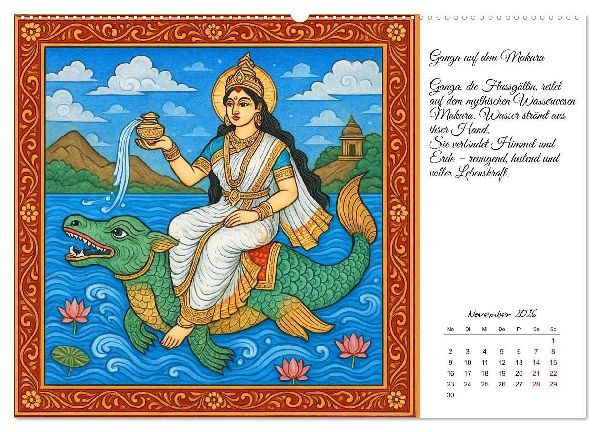 Ganga auf dem Makara
Ganga, die Flussgöttin, reitet
auf dem mythischen Wasserwesen
Makara. Wasser strömt aus
ihrer Hand.
Sie verbindet Himmel und
Erde – reinigend, heilend und
voller Lebenskraft.
November 2026
Mo Di Mi Do Fr Sa So
1
2 3 4 5 6 7 8
9 10 11 12 13 14 15
16 17 18 19 20 21 22
23 24 25 26 27 28 29
30